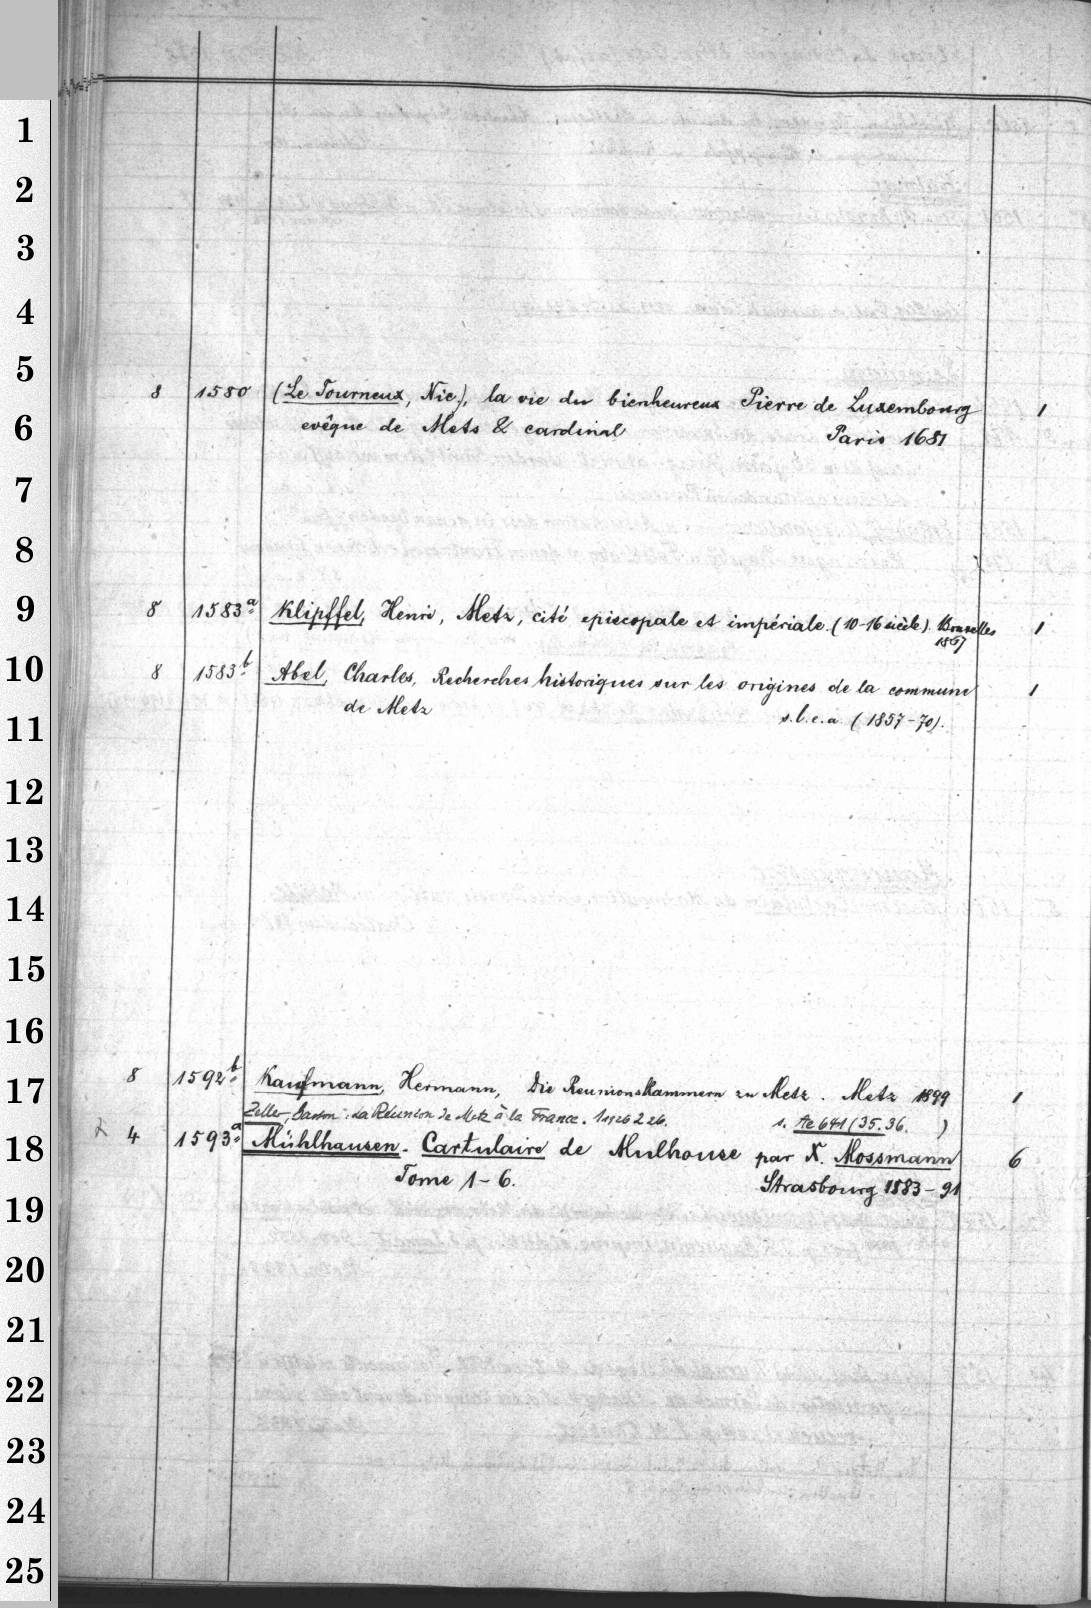 1
2
3
4
5
8 1580 (Le Tourneux, Nic.), la vie du bienheureux Pierre de Luxembourg 1
6 evêque de Mets & cardinal Paris 1681
7
8
9 8 1583a. Klipffel, Henri, Metz, cité episcopale et impériale. (10-16 siècle). Bruxelles 1
1867
10 8 1583b. Abel, Charles, Recherches historiques sur les origines de la commune 1
11 de Metz s.l.e.a. (1857-70).
12
13
14
15
16
17 8 1592b. Kaufmann, Hermann, Die Reunionskammern zu Metz. Metz 1899 1
Zeller, Gaston: La Réunion de Metz à la France. 1926 2 26. s. Ae 641 (35.36. )
18 2 4 1593a. Mühlhausen. Cartulaire de Mulhouse par X. Mossmann 6
Tome 1-6. Strasbourg 1883-91
19
20
21
22
23
24
25